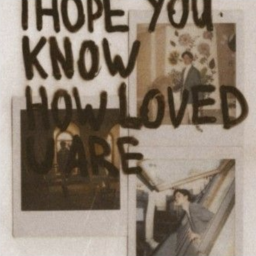 I HOPE YOU
KNOW
HOW LOVED
U ARE